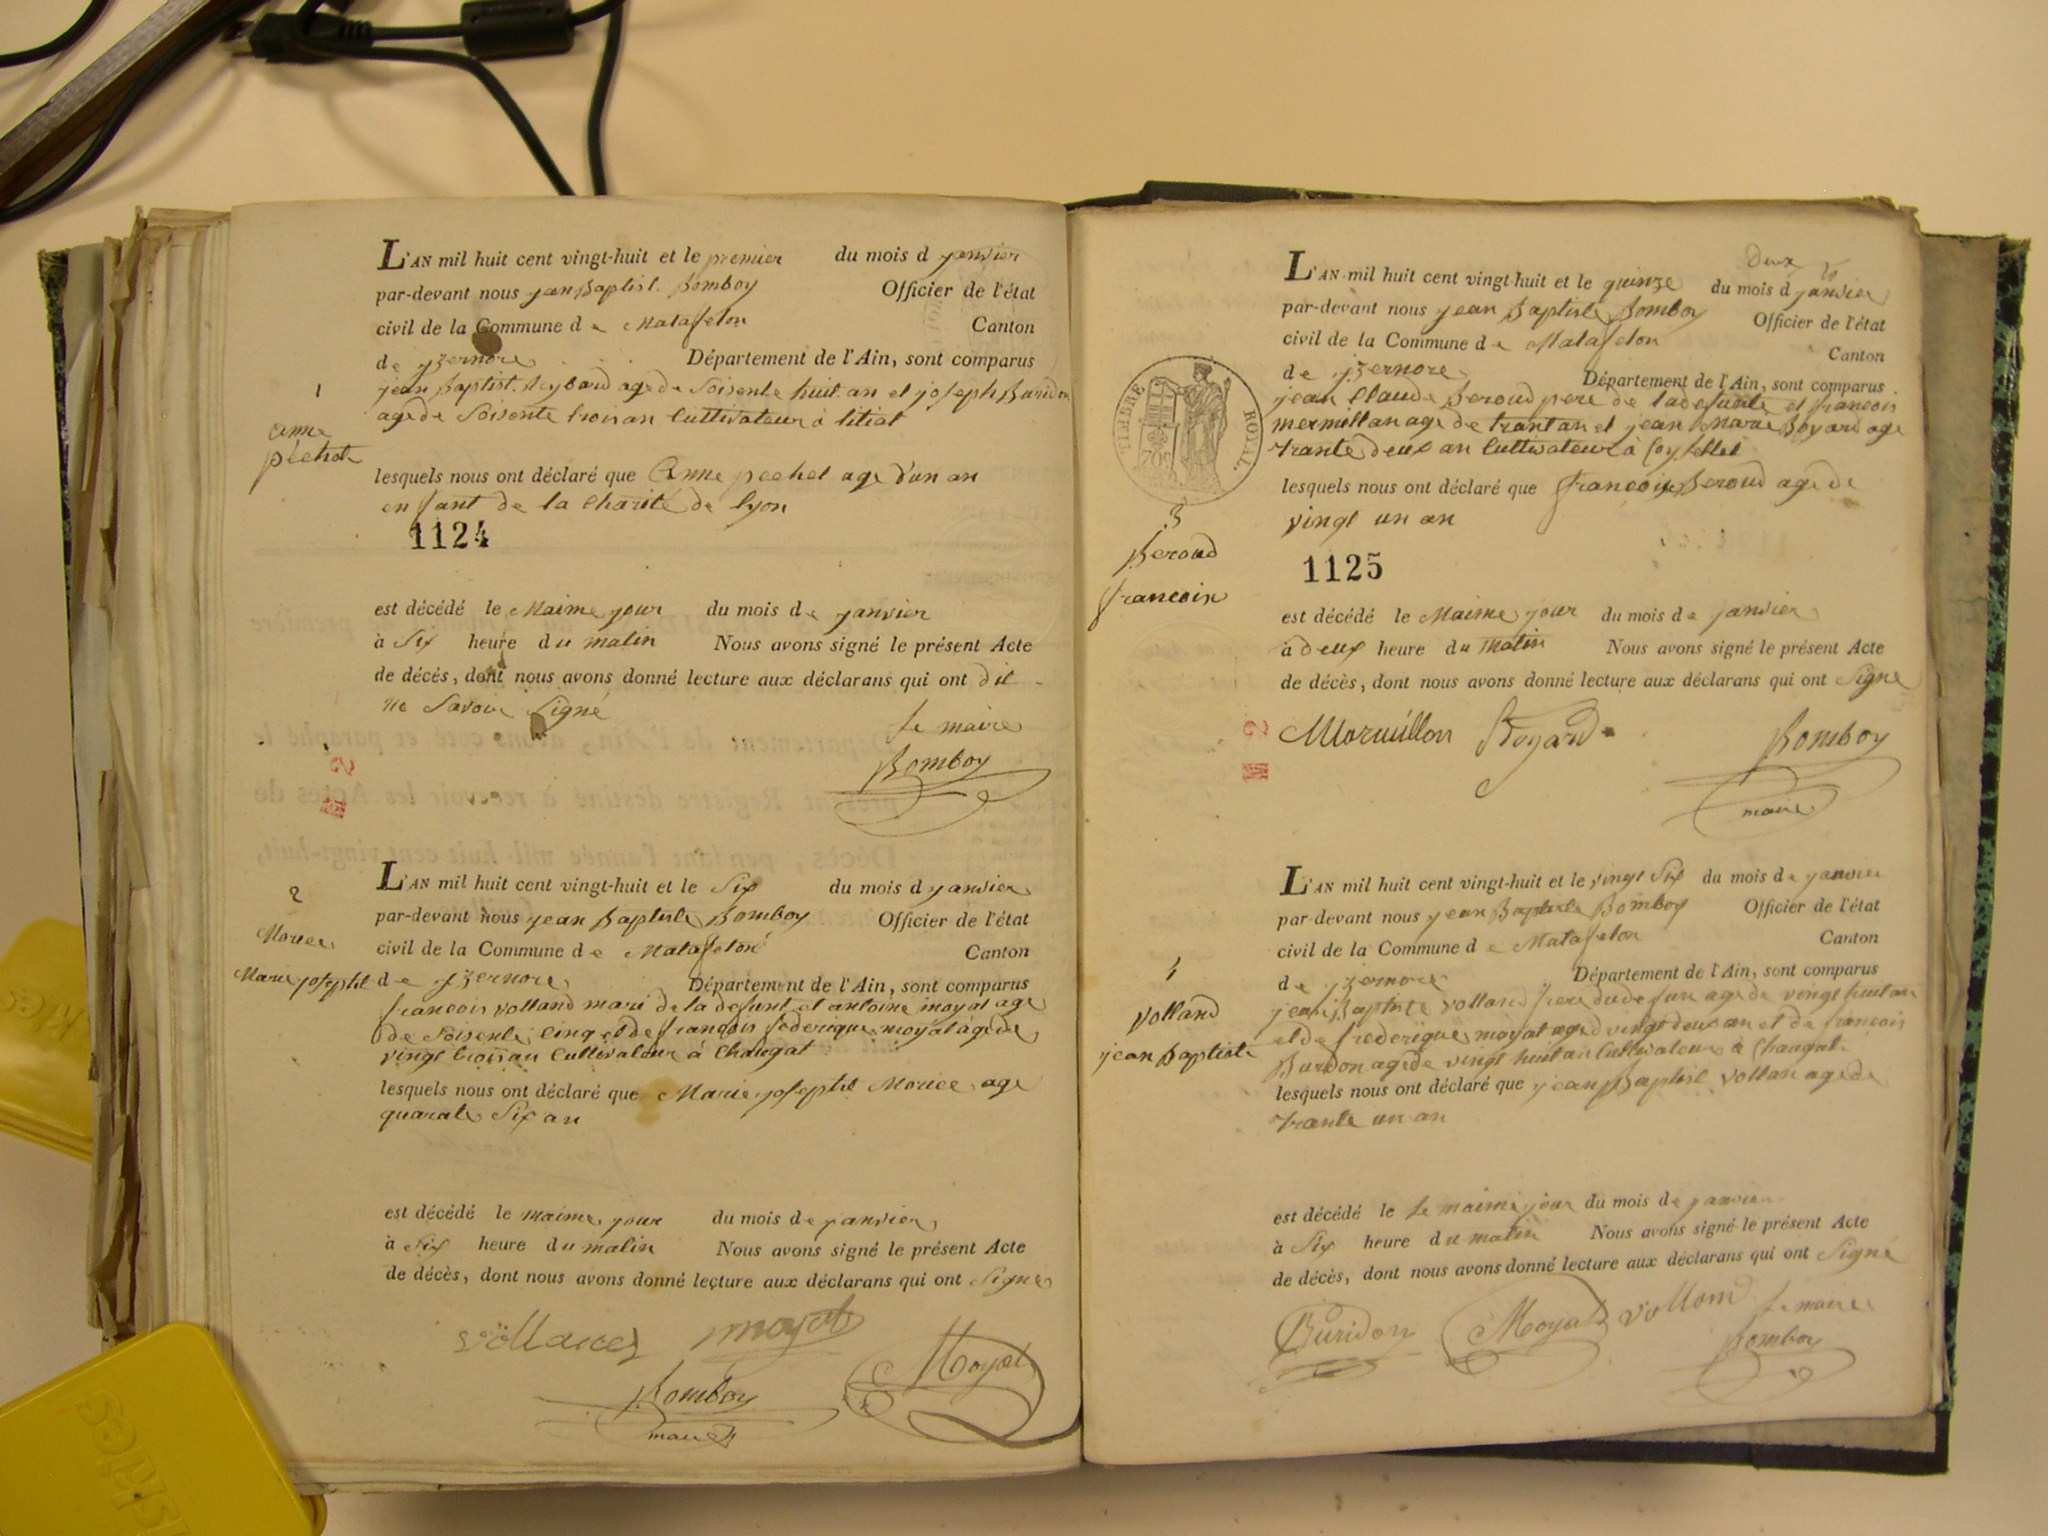 L'AN mil huit cent vingt-huit et le premier du mois d janvier
par-devant nous jean Baptist. Bomboy Officier de l'état
civil de la Commune de Matafelon Canton
de yzernore Département de l'Ain, sont comparus
jean Baptist. Reybard age de Soisente huit an et joseph Buridon
age de Soisente troisan Cultivateur à litiat
1
anne
péchot
lesquels nous ont déclaré que Anne pechet age d'un an
enfant de la Charité de lyon
1124
est décédé le Maime jour du mois de janvier
à Six heure du matin Nous avons signé le présent Acte
de décès, dont nous avons donné lecture aux déclarans qui ont dit
ne Savoir Signé
le maire
Bomboy
L'AN mil huit cent vingt-huit et le Six du mois d janvier
par-devant nous jean Baptiste Bomboy Officier de l'état
civil de la Commune de Matafelon Canton
de yzernore Département de l'Ain, sont comparus
2
Morice
Marie josephte
francois volland mari de la defunt et antoine moyat age
de Soisente cinq et de françois federique moyat âgé de
vingt troisan Cultivateur à Chaugat
lesquels nous ont déclaré que Marie josephte Morice age
quarate Six an
est décédé le maime jour du mois de janvier
à Six heure du matin Nous avons signé le présent Acte
de décès, dont nous avons donné lecture aux déclarans qui ont Signe
moyat
Moyat
Bomboy
maire
Deux
L'AN mil huit cent vingt-huit et le quinze du mois d janvier
par-devant nous jean Baptiste Bomboy Officier de l'état
civil de la Commune de Matafelon Canton
de yzernore Département de l'Ain, sont comparus
jean Claude Beroud pere de la defunte et francois
mermillan age de trant an et jean Marie Boyard age
trante deux an Cultivateur à Coyselet
TIMBRE ROYAL
3
Beroud
francoise
lesquels nous ont déclaré que francoise Beroud age de
vingt un an
1125
est décédé le Maime jour du mois de janvier
à deux heure du matin Nous avons signé le présent Acte
de décès, dont nous avons donné lecture aux déclarans qui ont Signe
Mormillon Boyard Bomboy
maire
L'AN mil huit cent vingt-huit et le vingt Six du mois de janvier
par-devant nous jean Baptiste Bomboy Officier de l'état
civil de la Commune de Matafelon Canton
de yzernore Département de l'Ain, sont comparus
volland
jean Baptiste
jean Baptiste volland frere du defun age de vingt huit an
et de frederique moyat aged vingt deux an et de francois
Buridon age de vingt huit an Cultivateur à Chaugat
lesquels nous ont déclaré que jean Baptist vollan age de
trante un an
est décédé le le maime jour du mois de janvier
à Six heure du matin Nous avons signé le présent Acte
de décès, dont nous avons donné lecture aux déclarans qui ont Signé
Buridon Moyat volland le maire
Bomboy